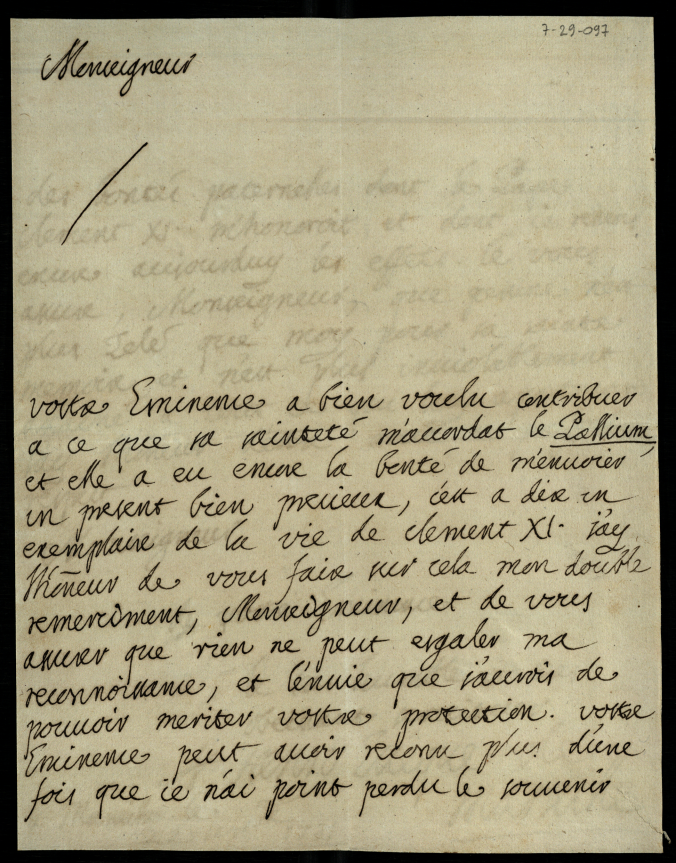 7-29-097
Monseigneur
vostre Eminence a bien voulu contribuer
a ce que sa sainteté m'accordat le Pallium,
et elle a eu encore la bonté de m'enuoier
un present bien precieux, c'est a dire un
exemplaire de la vie de clement XI. j'ay
l'hõneur de vous faire sur cela mon double
remerciment, Monseigneur, et de vous
assurer que rien ne peut esgaler ma
reconnoissance, et l'enuie que j'aurois de
pouvoir meriter vostre protection. vostre
Eminence peut auoir reconu plus d'une
fois que ie n'ai point perdu le souvenir